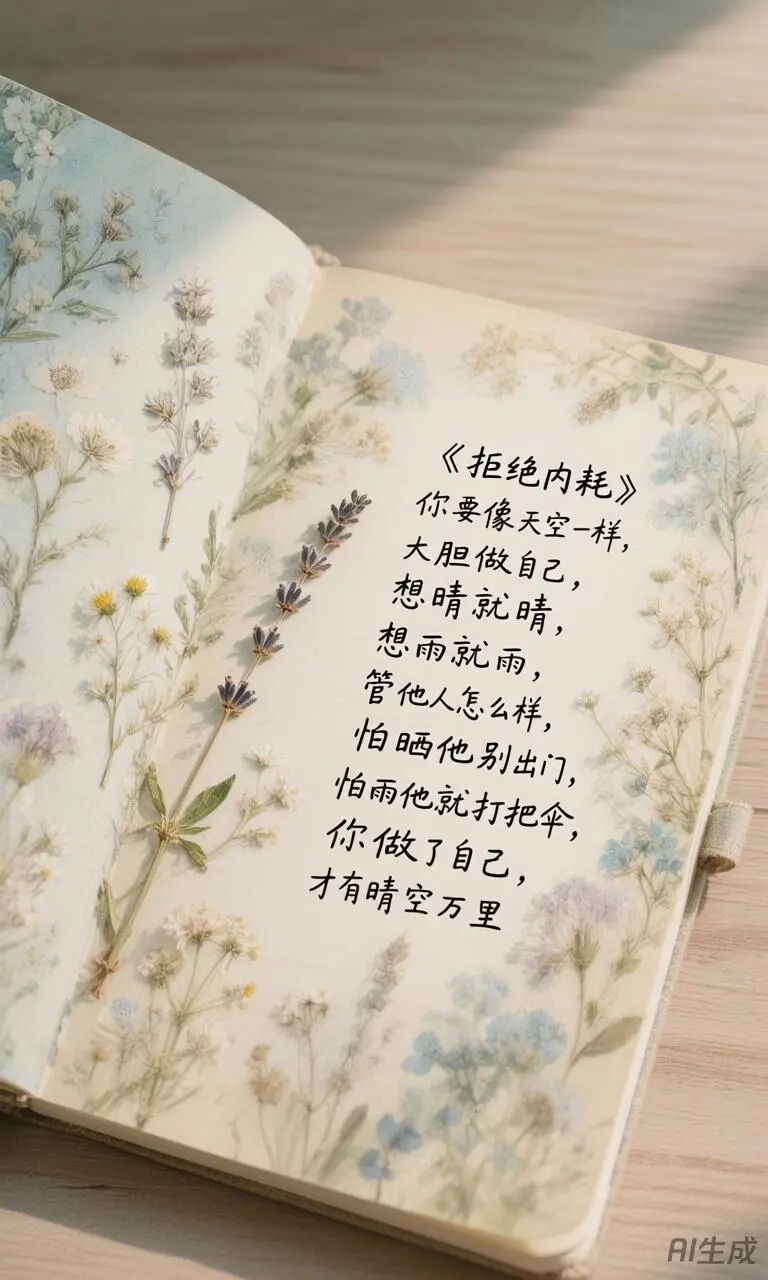 《拒绝内耗》
你要像天空一样，
大胆做自己，
想晴就晴，
想雨就雨，
管他人怎么样，
怕晒他别出门，
怕雨他就打把伞，
你做了自己，
才有晴空万里
AI生成